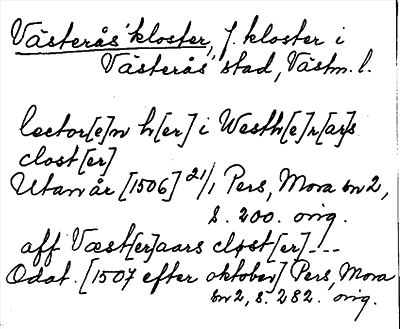 Västerås kloster, f. kloster i
Västerås stad, Västm. l.
lector[e]n h[er] i Westh[e]r[ar]s
clost[er]
Utan år [1506] 21/1 Pers, Mora bn 2,
s. 200. orig.
aff Væst[er]aars closst[er] ---
Odat. [1507 efter oktober] Pers, Mora
bn 2, s. 282. orig.